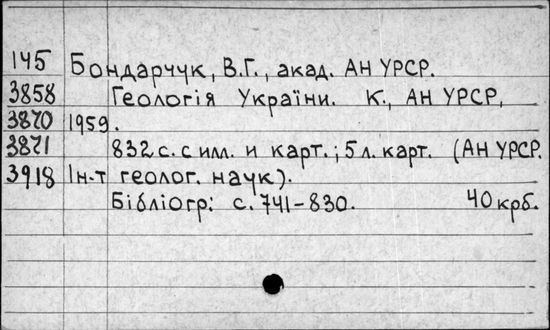 145 Бондарчук, В.Г., акад. АН УРСР.
3858 Геологія України. К., АН УРСР,
3870 1959.
3871 832 с. с илл. и карт.; 5 л. карт. (АН УРСР.
3918 Ін-т геолог. наук).
Бібліогр: с. 741-830. 40 крб.